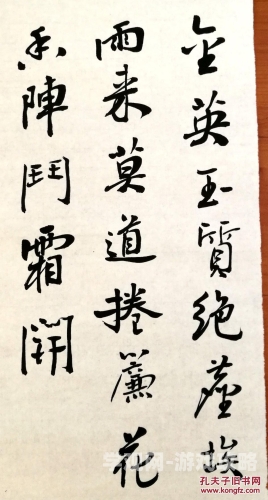 金英玉質絕塵埃
雨来莫道捲簾花
香陣鬥霜開
网-游戏攻略
孔夫子旧书网
www.kongfz.com